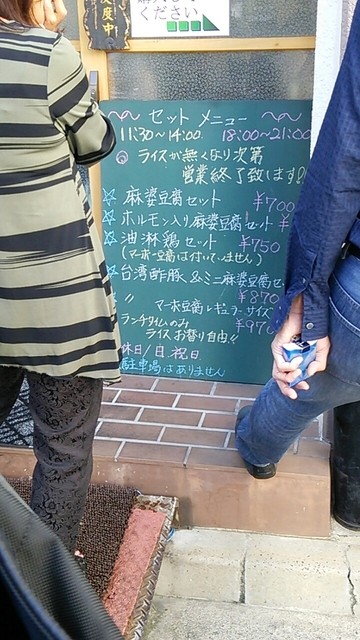 ください
セット メニュー
11:30～14:00 18:00～21:00
◎ ライスが無くなり次第
営業終了致します!!
☆ 麻婆豆腐セット ¥700
☆ ホルモン入り麻婆豆腐セット ¥
☆ 油淋鶏セット ¥750
(マーボー豆腐は付いていません)
☆ 台湾酢豚 & ミニ麻婆豆腐セ
¥870
〃 マーボ豆腐レギュラーサイズ
¥970
ランチタイムのみ
ライスお替り自由!!
休日/日 祝日
駐車場はありません